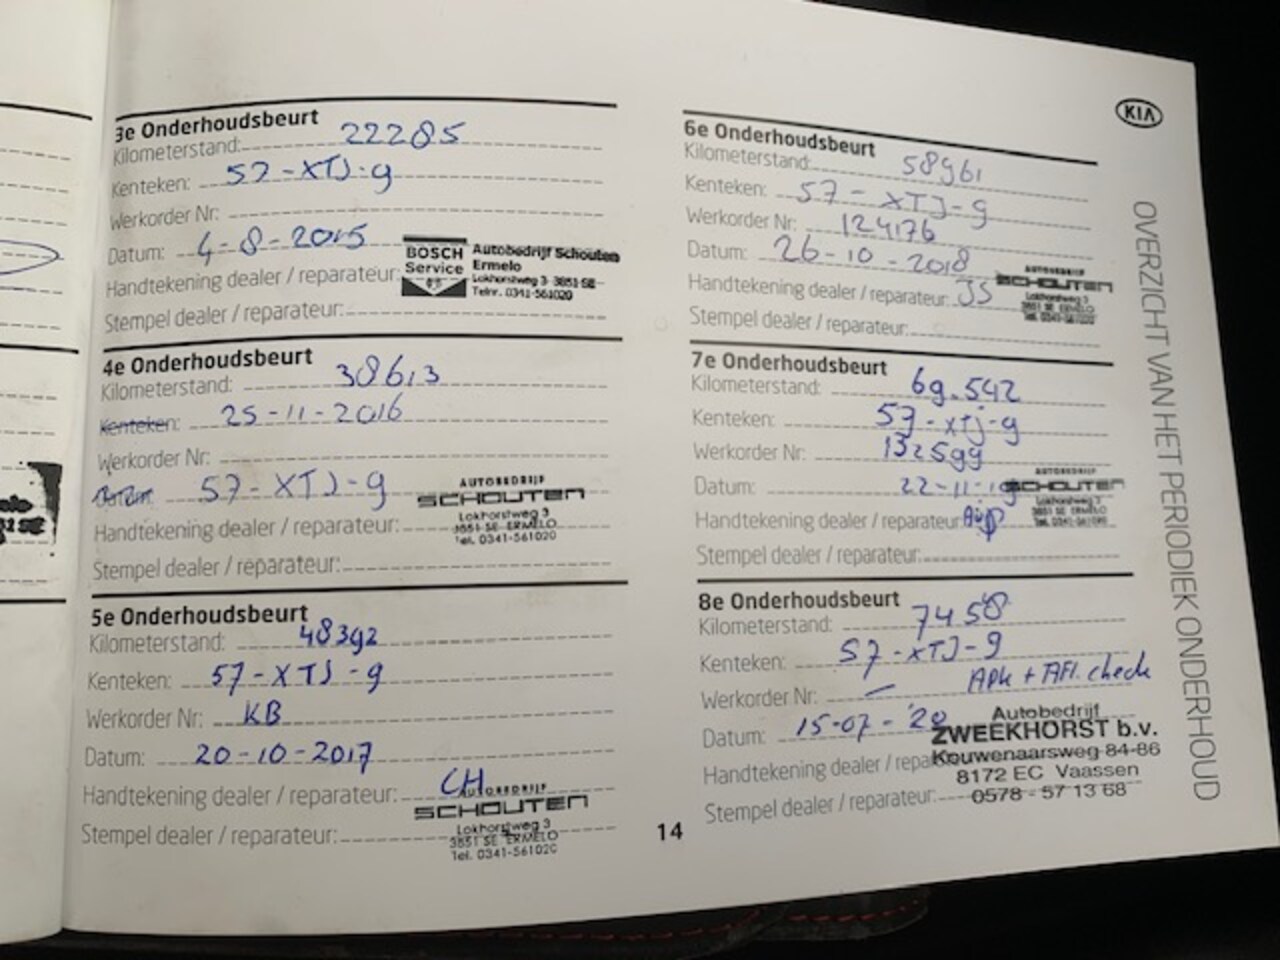 3e Onderhoudsbeurt
Kilometerstand: 22285
Kenteken: 57-XTJ-9
Werkorder Nr:
Datum: 4-8-2015
Handtekening dealer / reparateur:
BOSCH Service
Autobedrijf Schouten
Ermelo
Lokhorstweg 3 3851 SE
Telnr. 0341-561020
Stempel dealer / reparateur:
4e Onderhoudsbeurt
Kilometerstand: 38613
Kenteken: 25-11-2016
Werkorder Nr:
Datum: 57-XTJ-9
Handtekening dealer / reparateur:
AUTOBEDRIJF
SCHOUTEN
Lokhorstweg 3
3851 SE ERMELO
Tel. 0341-561020
Stempel dealer / reparateur:
5e Onderhoudsbeurt
Kilometerstand: 48392
Kenteken: 57-XTJ-9
Werkorder Nr: KB
Datum: 20-10-2017
Handtekening dealer / reparateur: CH
AUTOBEDRIJF
SCHOUTEN
Lokhorstweg 3
3851 SE ERMELO
Tel. 0341-561020
Stempel dealer / reparateur:
KIA
6e Onderhoudsbeurt
Kilometerstand: 58961
Kenteken: 57-XTJ-9
Werkorder Nr: 124176
Datum: 26-10-2018
Handtekening dealer / reparateur: JS
AUTOBEDRIJF
SCHOUTEN
Lokhorstweg 3
3851 SE ERMELO
Tel. 0341-561020
Stempel dealer / reparateur:
7e Onderhoudsbeurt
Kilometerstand: 69.542
Kenteken: 57-XTj-9
Werkorder Nr: 132599
Datum: 22-11-19
Handtekening dealer / reparateur:
AUTOBEDRIJF
SCHOUTEN
Lokhorstweg 3
3851 SE ERMELO
Tel. 0341-561020
Stempel dealer / reparateur:
8e Onderhoudsbeurt
Kilometerstand: 7458
Kenteken: 57-XTJ-9
Werkorder Nr: — APk + Afl. check
Datum: 15-07-'20
Handtekening dealer / reparateur:
Stempel dealer / reparateur:
Autobedrijf
ZWEEKHORST b.v.
Kouwenaarsweg 84-86
8172 EC Vaassen
0578 - 57 13 68
OVERZICHT VAN HET PERIODIEK ONDERHOUD
14